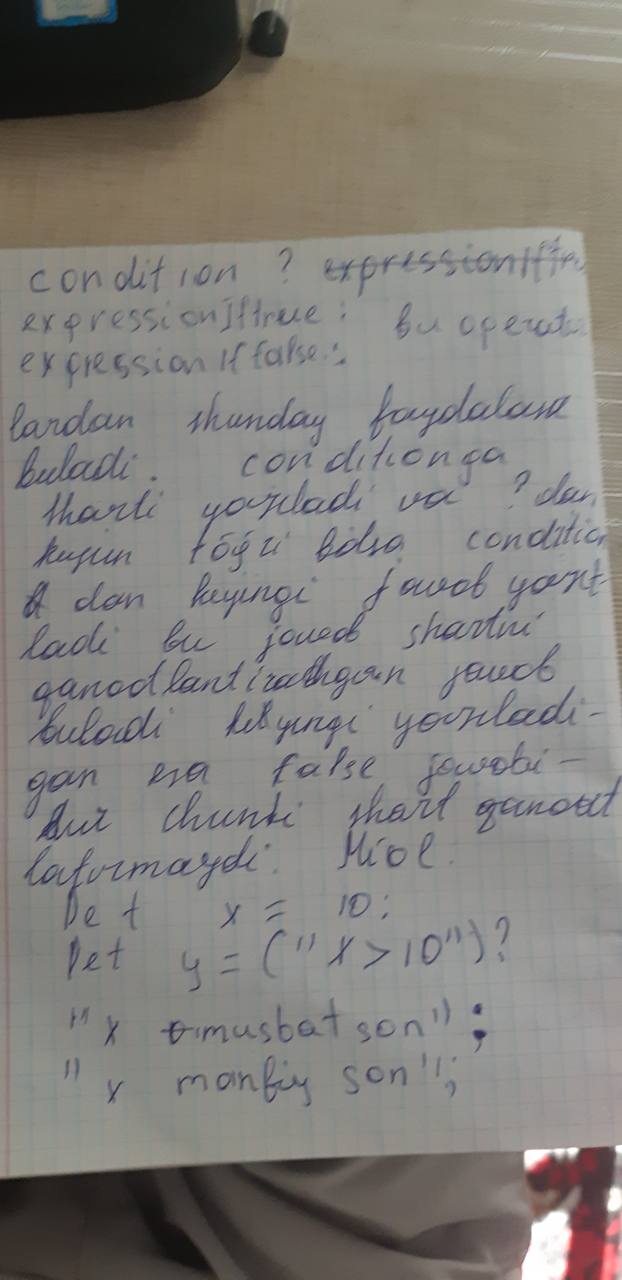 condition ? expressionIftru
expressionIftrue : bu operato
expression If false :
lardan shunday foydalansa
buladi. conditionga
sharti yoziladi va ? dan
keyin tög'ri bölsa condition
dan keyingi javob yozi-
ladi bu javob shartni
qanoatlantiradigan javob
buladi keyingi yoziladi-
gan esa false javobi-
dur chunki shart qanoat
lanmaydi. Misol.
Let x = 10;
Let y = ("x>10")?
"x musbat son" :
"x manfiy son";